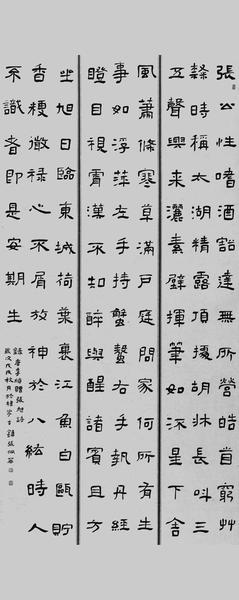 張公性嗜酒豁達無所營皓首窮艸
隸時稱太湖精露頂據胡牀長叫三
五聲興來灑素壁揮筆如流星下舍
風蕭條寒草滿戶庭問家何所有生
事如浮萍左手持蟹螯右手執丹經
瞪目視霄漢不知醉與醒諸賓且方
坐旭日臨東城荷葉裹江魚白甌貯
香粳微祿心不屑放神於八紘時人
不識者即是安期生
錄唐李頎贈張旭詩
歲次戊戌秋月於